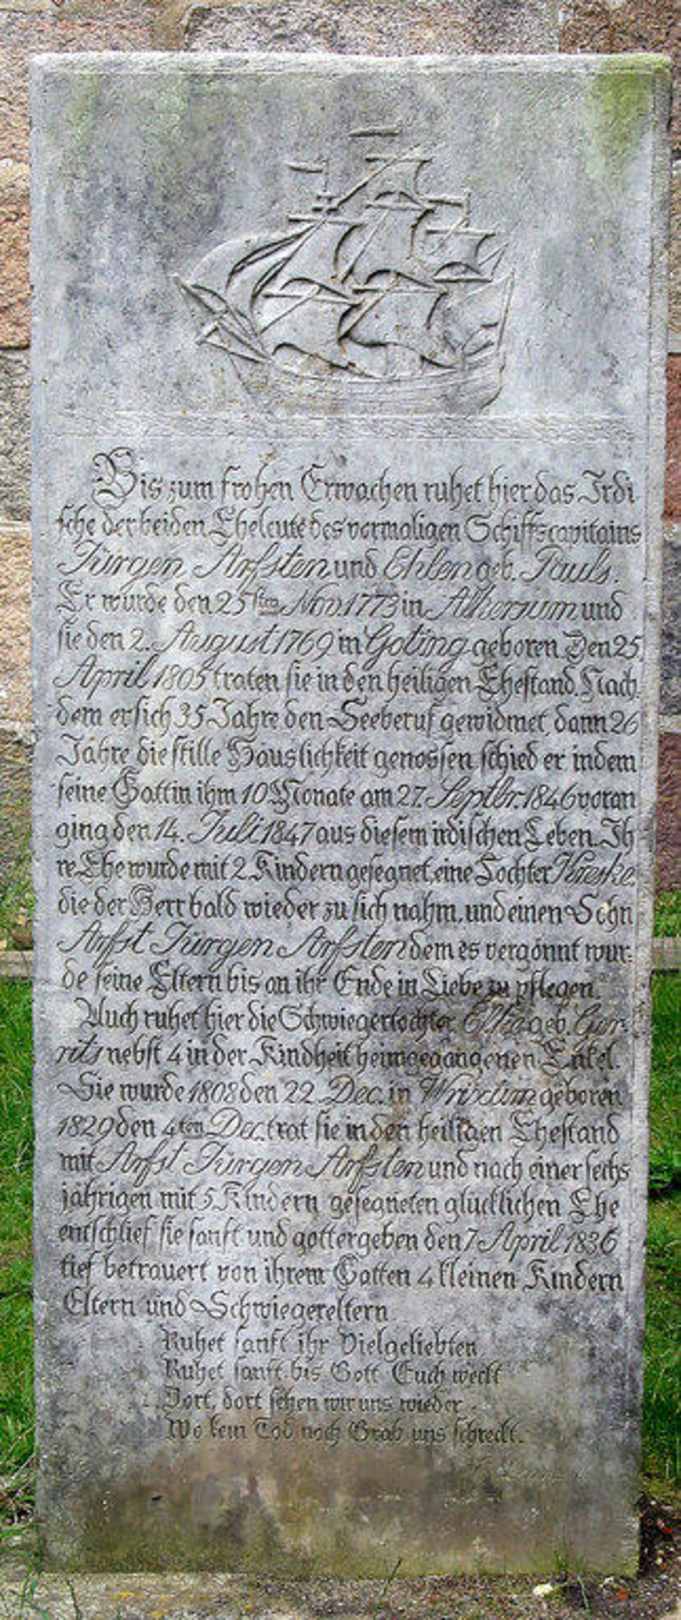 Bis zum frohen Erwachen ruhet hier das Irdi
sche der beiden Eheleute des vormaligen Schiffscapitains
Jürgen Arfsten und Ehlen geb. Pauls.
Er wurde den 25sten Nov. 1773 in Alkersum und
sie den 2. August 1769 in Goting geboren. Den 25.
April 1805 traten sie in den heiligen Ehestand. Nach
dem er sich 35 Jahre den Seeberuf gewidmet, dann 26
Jahre die stille Häuslichkeit genossen schied er indem
seine Gattin ihm 10 Monate am 27. Septbr. 1846 voran
ging den 14. Juli 1847 aus diesem irdischen Leben. Ih
re Ehe wurde mit 2 Kindern gesegnet, eine Tochter Kreske,
die der Herr bald wieder zu sich nahm, und einen Sohn
Arfst Jürgen Arfsten dem es vergönnt wur-
de seine Eltern bis an ihr Ende in Liebe zu pflegen.
Auch ruhet hier die Schwiegertochter Elka geb. Gur-
rits nebst 4 in der Kindheit heimgegangenen Enkel.
Sie wurde 1808 den 22. Dec. in Wrixum geboren
1829 den 4ten Dec. trat sie in den heiligen Ehestand
mit Arfst Jürgen Arfsten und nach einer sechs
jährigen mit 5 Kindern gesegneten glücklichen Ehe
entschlief sie sanft und gottergeben den 7 April 1836
tief betrauert von ihrem Gatten 4 kleinen Kindern
Eltern und Schwiegereltern.
Ruhet sanft ihr Vielgeliebten
Ruhet sanft bis Gott Euch weckt
Dort, dort sehen wir uns wieder
Wo kein Tod noch Grab uns schreckt.